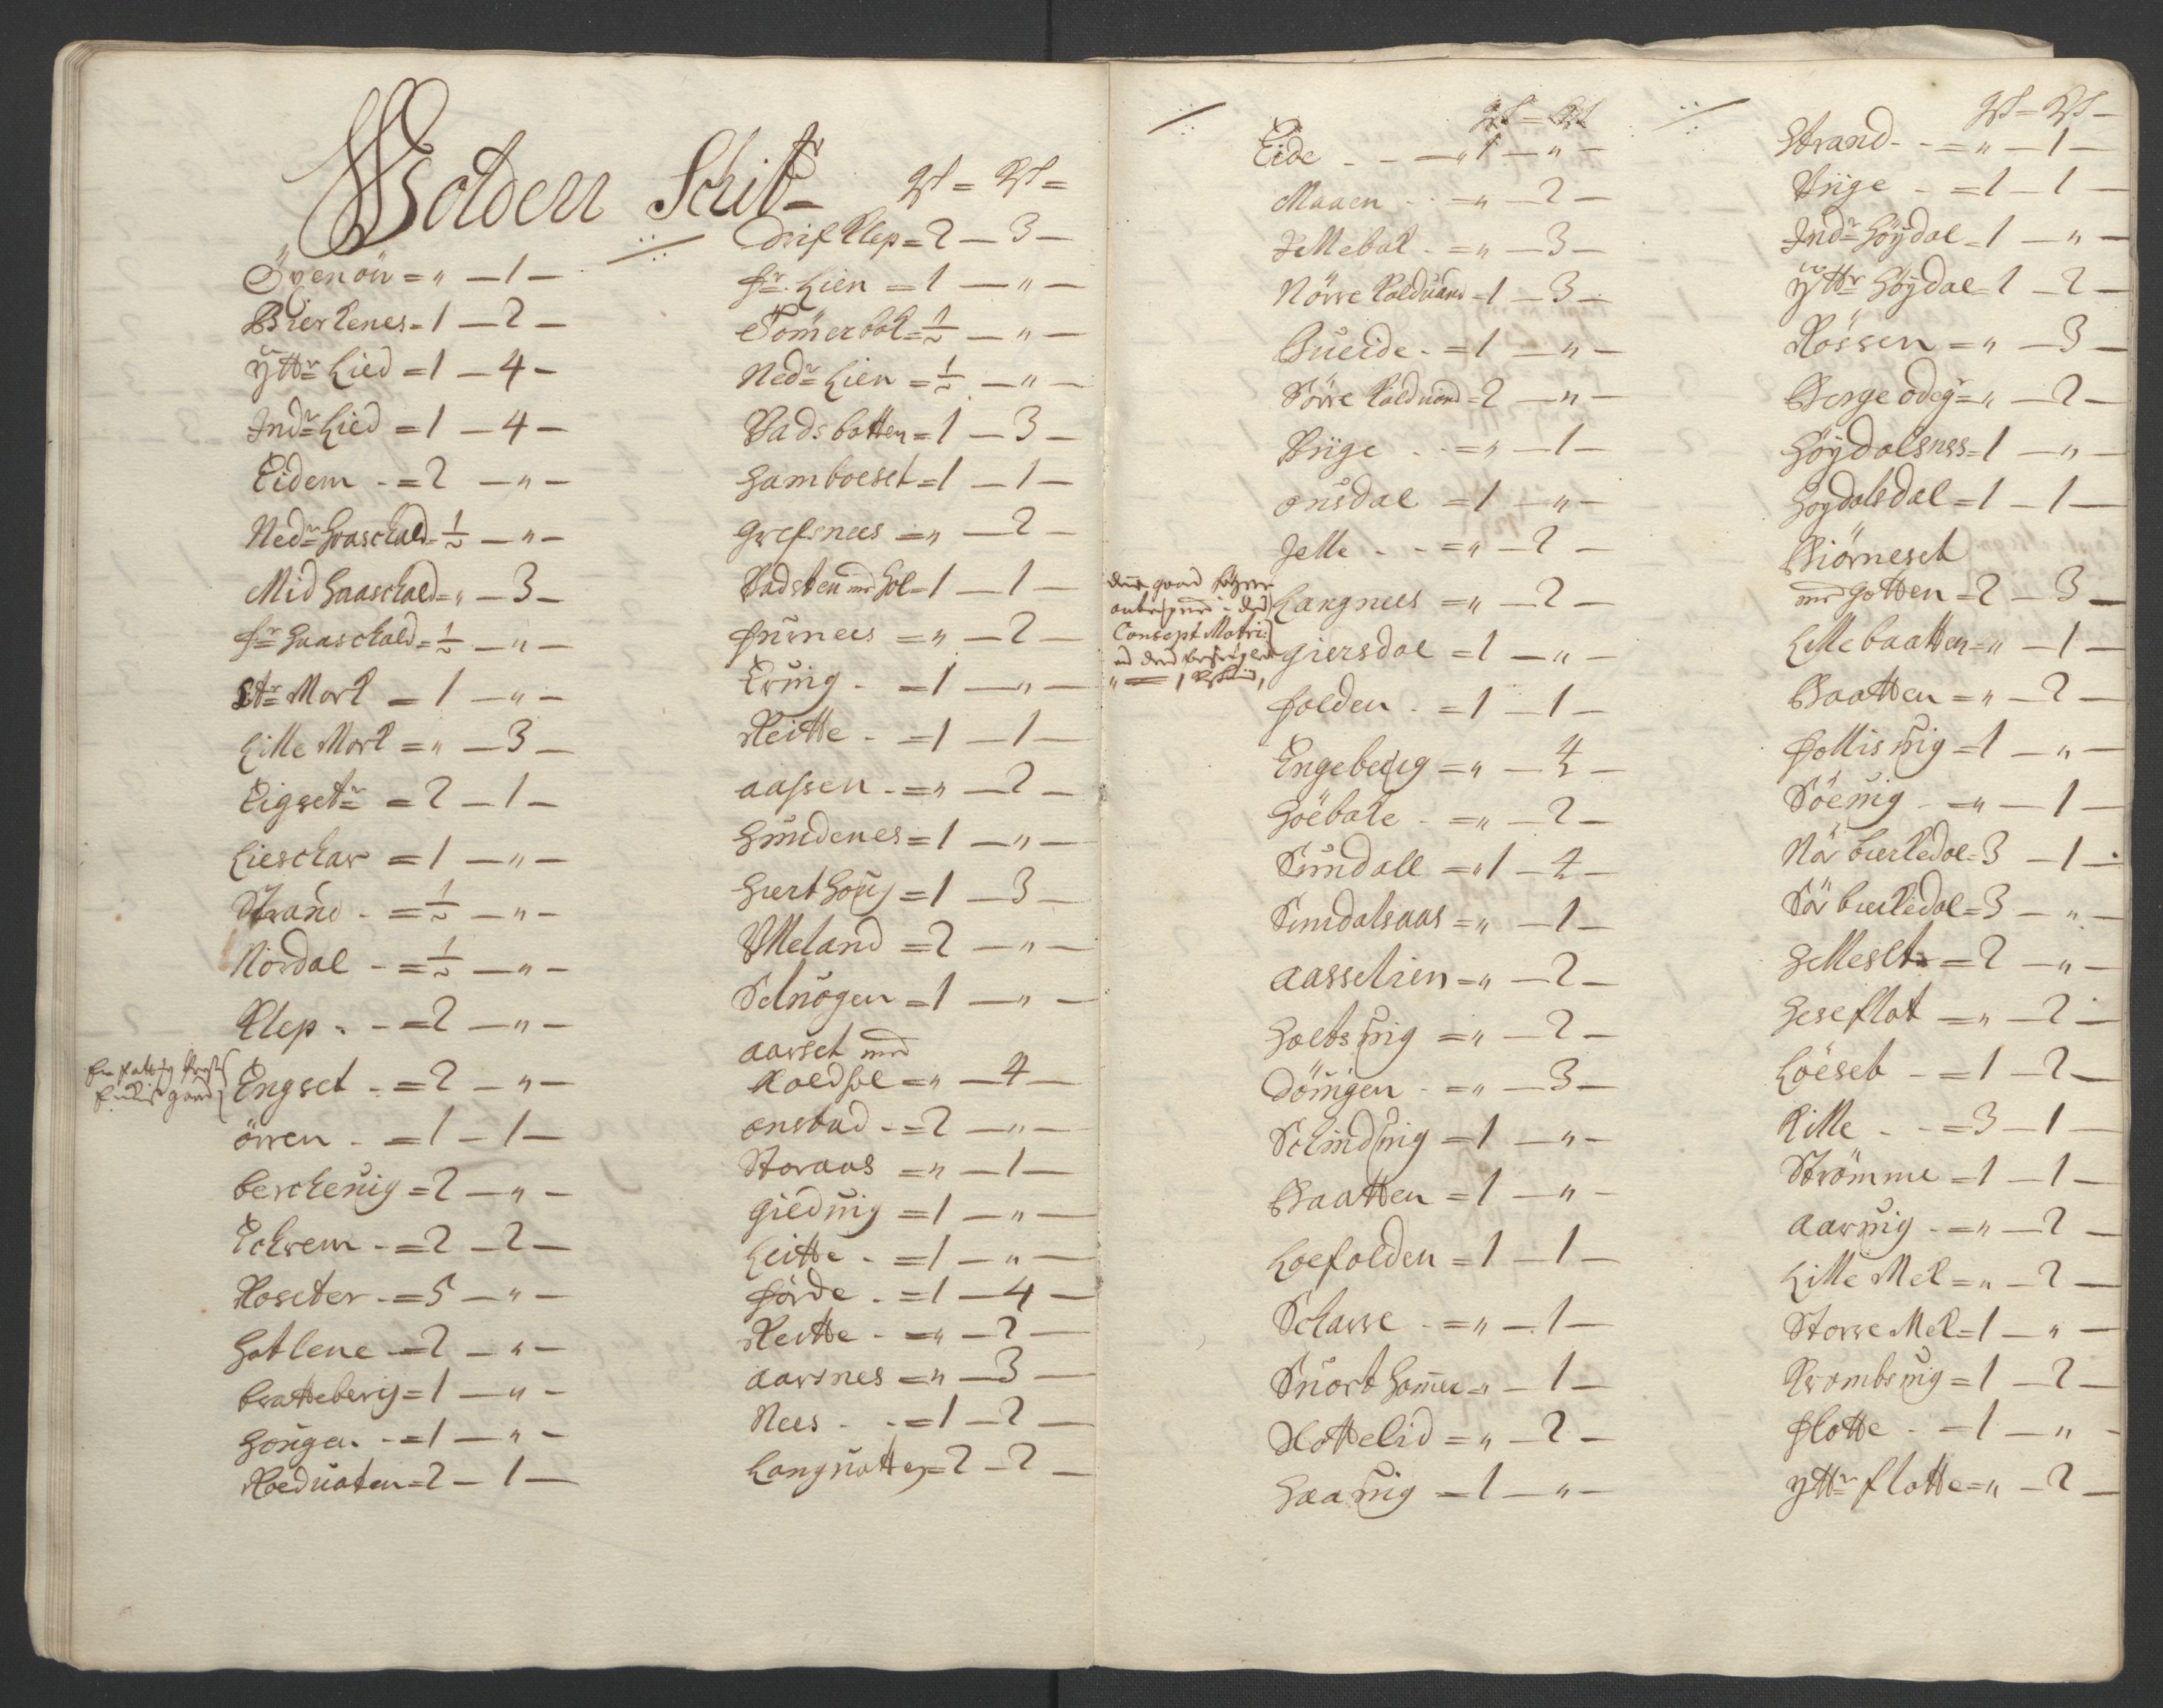 Wolden Schibr
Öyenöu = " — 1 —
Bierkenes = 1 — 2 —
Yttr Lied = 1 — 4 —
Indr Lied = 1 — 4 —
Eidem - = 2 — " —
Nedr Haaschald = ½ — " —
Mid Haaschald = " — 3 —
Fr Haaschald = ½ — " —
Str Mork = 1 — " —
Lille Mork = " — 3 —
Eigsetr = 2 — 1 —
Lieschar = 1 — " —
Strand - = ½ — " —
Nordal - = ½ — " —
Klep - = 2 — " —
Engset - = 2 — " —
örren - = 1 — 1 —
berckeuig = 2 — " —
Echrem - = 2 — 2 —
Roseter - = 5 — " —
Hotlene = 2 — " —
bratteberg = 1 — " —
Houge - = 1 — " —
Roeduaten = 2 — 1 —
Drif Klep = 2 — 3 —
fr. Lien = 1 — " —
Tömerbok = ½ — " —
Nedr Lien = ½ — " —
Vadsbotten = 1 — 3 —
Hamboeset = 1 — 1 —
Grefsnees = " — 2 —
Vadsten md Hol = 1 — 1 —
Furnees = " — 2 —
Eruig - = 1 — " —
Reitte - = 1 — 1 —
aassen - = " — 2 —
Hundenes = 1 — " —
Hierthoug = 1 — 3 —
Ulleland = 2 — " —
Selnögen = 1 — " —
aarset med
Koldhol = " — 4 —
onstad - = 2 — " —
Storaas = " — 1 —
Gieduig = 1 — " —
Leitte - = 1 — " —
Förde - = 1 — 4 —
Reitte - = " — 2 —
aarsnes = " — 3 —
Nees - - = 1 — 2 —
Langnotte = 2 — 2 —
Eide - - — " 1 — " —
Maaen - - = " — 2 —
Jellebak - = " — 3 —
Nörre Kolduand = 1 — 3 —
Bueide - = 1 — " —
Sörre Kolduand = 2 — " —
Riige - - = " — 1 —
onsdal = 1 — " —
Jelle - - = " — 2 —
Langnees = " — 2 —
Giersdal = 1 — " —
Folden - = 1 — 1 —
Engeberg = " — 4 —
Höebake - = " — 2 —
Sundall = " 1 — 4 —
Sundalsaas = " — 1 —
aasselien = " — 2 —
Holtsuig = " — 2 —
Döuigen - = " — 3 —
Solinduig = 1 — " —
Baatten = 1 — " —
Loefolden = 1 — 1 —
Scharre - = " — 1 —
Suorthamer = " — 1 —
Slottelid = " — 2 —
Haauig = 1 — " —
Strand - - = " — 1 —
Riige - = 1 — 1 —
Indr Höydal = 1 — " —
Yttr Höydal = 1 — 2 —
Rössen = " — 3 —
Berge ödeg = " — 2 —
Höydalsnes = 1 — " —
Hoydalsdal = 1 — 1 —
Biörneset
med Gotten = 2 — 3 —
Lille baatten = " — 1 —
Baatten = " — 2 —
Follisuig = 1 — " —
Söeuig - = " — 1 —
Nör bierkedal = 3 — 1 —
Sör bierkedal = 3 — " —
Helleset = 2 — " —
Heseflot = " — 2 —
Löeset - = 1 — 2 —
Kille - - = 3 — 1 —
Strömme = 1 — 1 —
aaruig - = " — 2 —
Lille Mek = " — 2 —
Storre Mek = 1 — " —
Krombsuig = 1 — 2 —
Flotte - = 1 — " —
Yttr flotte = " — 2 —